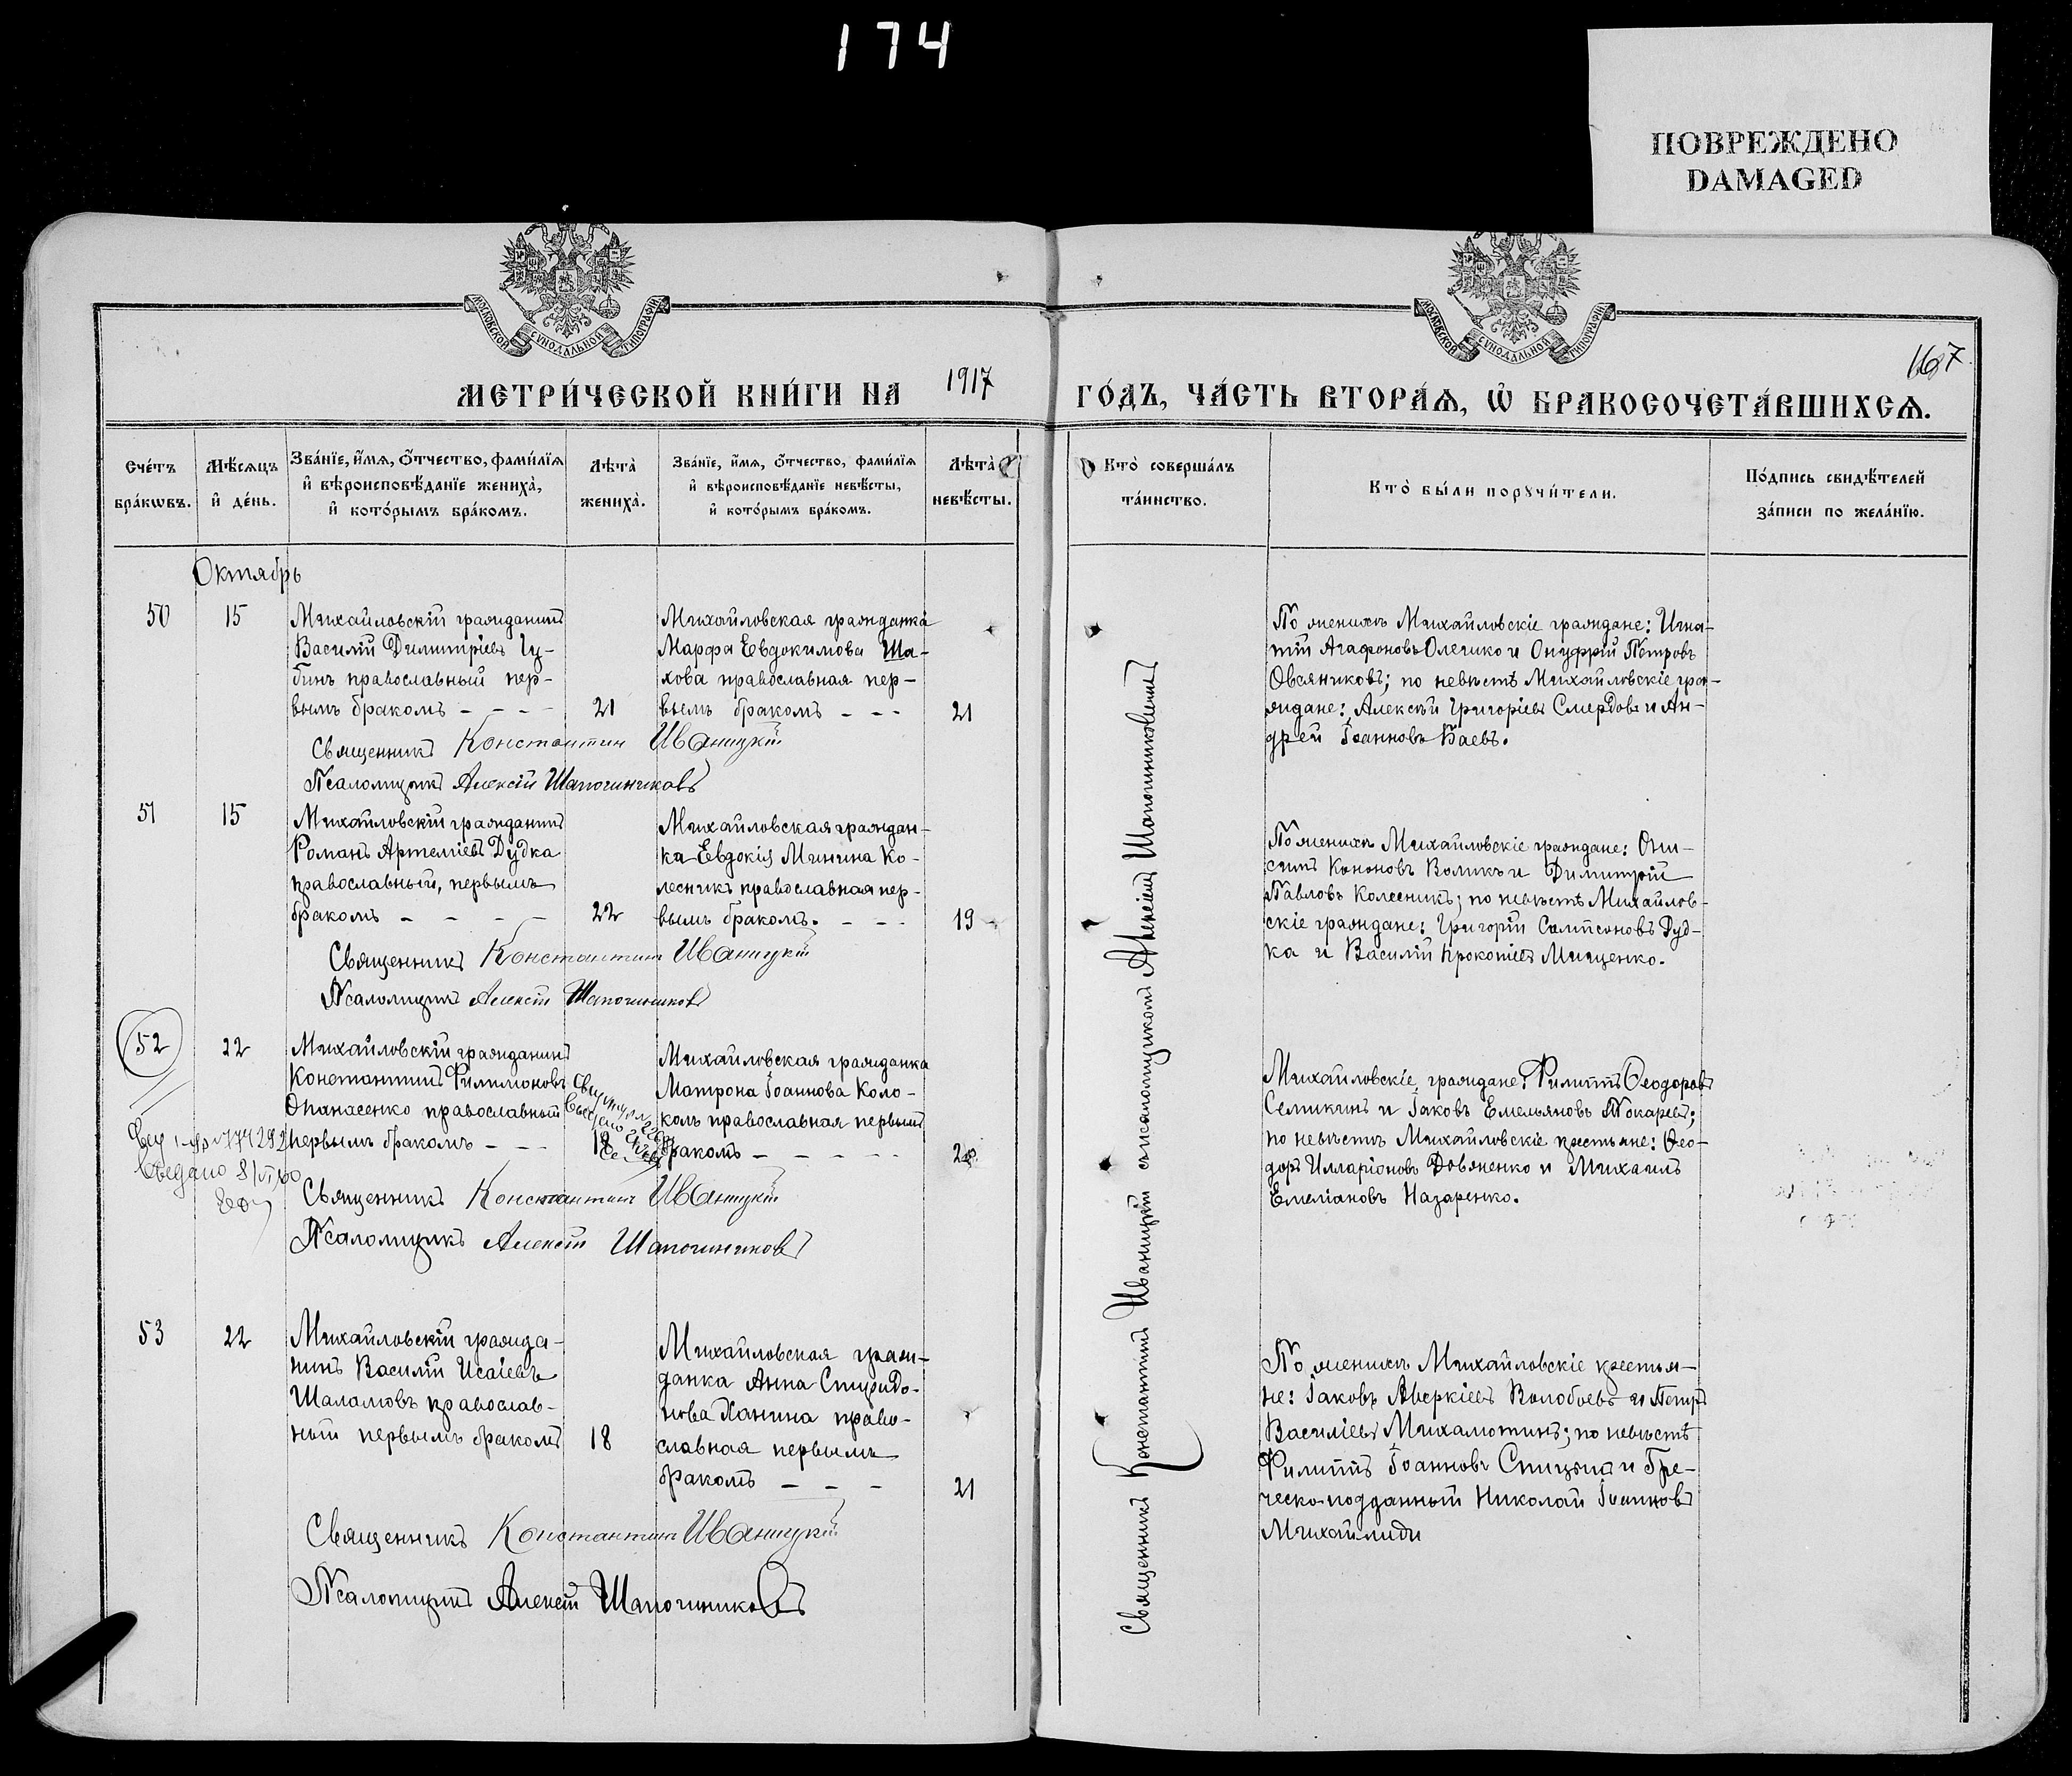 174
ПОВРЕЖДЕНО
DAMAGED
МОСКОВСКОЙ СУНОДАЛЬНОЙ ТИПОГРАФІИ
МОСКОВСКОЙ СУНОДАЛЬНОЙ ТИПОГРАФІИ
167
МЕТРИ́ЧЕСКОЙ КНИ́ГИ НА 1917 ГО́ДЪ, ЧА́СТЬ ВТОРА́Ѧ, Ѡ҆ БРАКОСОЧЕТА́ВШИХСѦ.
Сче́тъ
бра́кѡвъ.
Мѣ́сяцъ
и҆ де́нь.
Зва́нїе, и҆́мѧ, ѻ҆́тчество, фами́лїѧ
и҆ вѣроисповѣ́данїе жениха̀,
и҆ кото́рымъ бра́комъ.
Лѣ̑та̀
жениха̀.
Зва́нїе, и҆́мѧ, ѻ҆́тчество, фами́лїѧ
и҆ вѣроисповѣ́данїе невѣ́сты,
и҆ кото́рымъ бра́комъ.
Лѣ̑та̀
невѣ́сты.
Кто̀ соверша́лъ
та́инство.
Кто̀ бы́ли порꙋчи́тели.
По́дпись свидѣ́телей
за́писи по жела́нїю.
Октябрь
50
15
Михайловскій гражданинъ
Василій Димитріевъ
бинъ православный пер-
вымъ бракомъ - - - -
21
Михайловская гражданка
Марфа Евдокимова Ша-
хова православная пер-
вымъ бракомъ - - -
21
По женихѣ Михайловскіе граждане: Игна-
тій Агафоновъ Олешко и Онуфрій Петровъ
Овсяниковъ; по невѣстѣ Михайловскіе гра-
ждане: Алексѣй Григоріевъ Смердовъ и Ан-
дрей Іоанновъ Баевъ.
Священникъ Константинъ Иваницкій
Псаломщикъ Алексій Шапошниковъ
51
15
Михайловскій гражданинъ
Романъ Артеміевъ Дудка
православный, первымъ
бракомъ - - - -
22
Михайловская граждан-
ка Евдокія Минина Ко-
лесникъ православная пер-
вымъ бракомъ. - - -
19
По женихѣ Михайловскіе граждане: Они-
симъ Кононовъ Воликъ и Димитрій
Павловъ Колесникъ; по невѣстѣ Михайлов-
скіе граждане: Григорій Сампсоновъ Дуд-
ка и Василій Прокопіевъ Мищенко.
Священникъ Константинъ Иваницкій
Псаломщикъ Алексѣй Шапошниковъ
52
22
Михайловскій гражданинъ
Константинъ Филимоновъ
Опанасенко православный
первымъ бракомъ - - -
18
Михайловская гражданка
Матрона Іоаннова Коло-
колъ православная первымъ
бракомъ - - - - -
Михайловскіе граждане: Филиппъ Ѳеодоровъ
Семикинъ и Іаковъ Емельяновъ Токаревъ;
по невѣстѣ Михайловскіе крестьяне: Ѳео-
доръ Илларіоновъ Довженко и Михаилъ
Емеліановъ Назаренко.
Священникъ Константинъ Иваницкій
Псаломщикъ Алексѣй Шапошниковъ
53
22
Михайловскій гражда-
нинъ Василій Исаіевъ
Шаламовъ православ-
ный первымъ бракомъ
18
Михайловская граж-
данка Анна Спиридо-
нова Ханина право-
славная первымъ
бракомъ - - -
21
По женихѣ Михайловскіе крестья-
не: Іаковъ Аверкіевъ Волобоевъ и Петръ
Василіевъ Михамотинъ; по невѣстѣ
Филиппъ Іоанновъ и Гре-
ческо-подданный Николай Іоанновъ
Михайлиди
Священникъ Константинъ Иваницкій
Псаломщикъ Алексѣй Шапошниковъ
Священникъ Константинъ Иваницкій съ псаломщикомъ Алексіемъ Шапошниковымъ